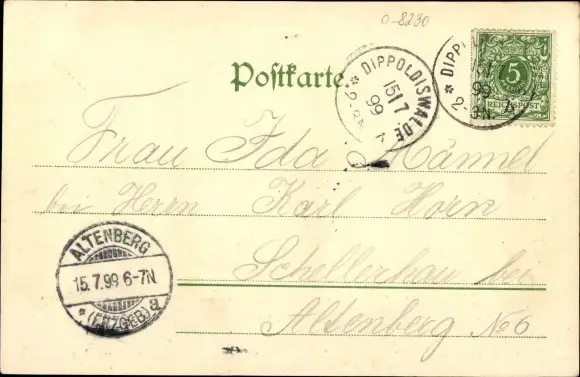 O-8230
Postkarte
DIPPOLDISWALDE
15/7
99
2-3N.
DIPP
15/
99
2-3N.
5
REICHSPOST
Frau Ida Männel
bei Herrn Karl Horn
Schellerhau bei
Altenberg No 6
ALTENBERG
15.7.99 6-7N.
* (ERZGEB) a